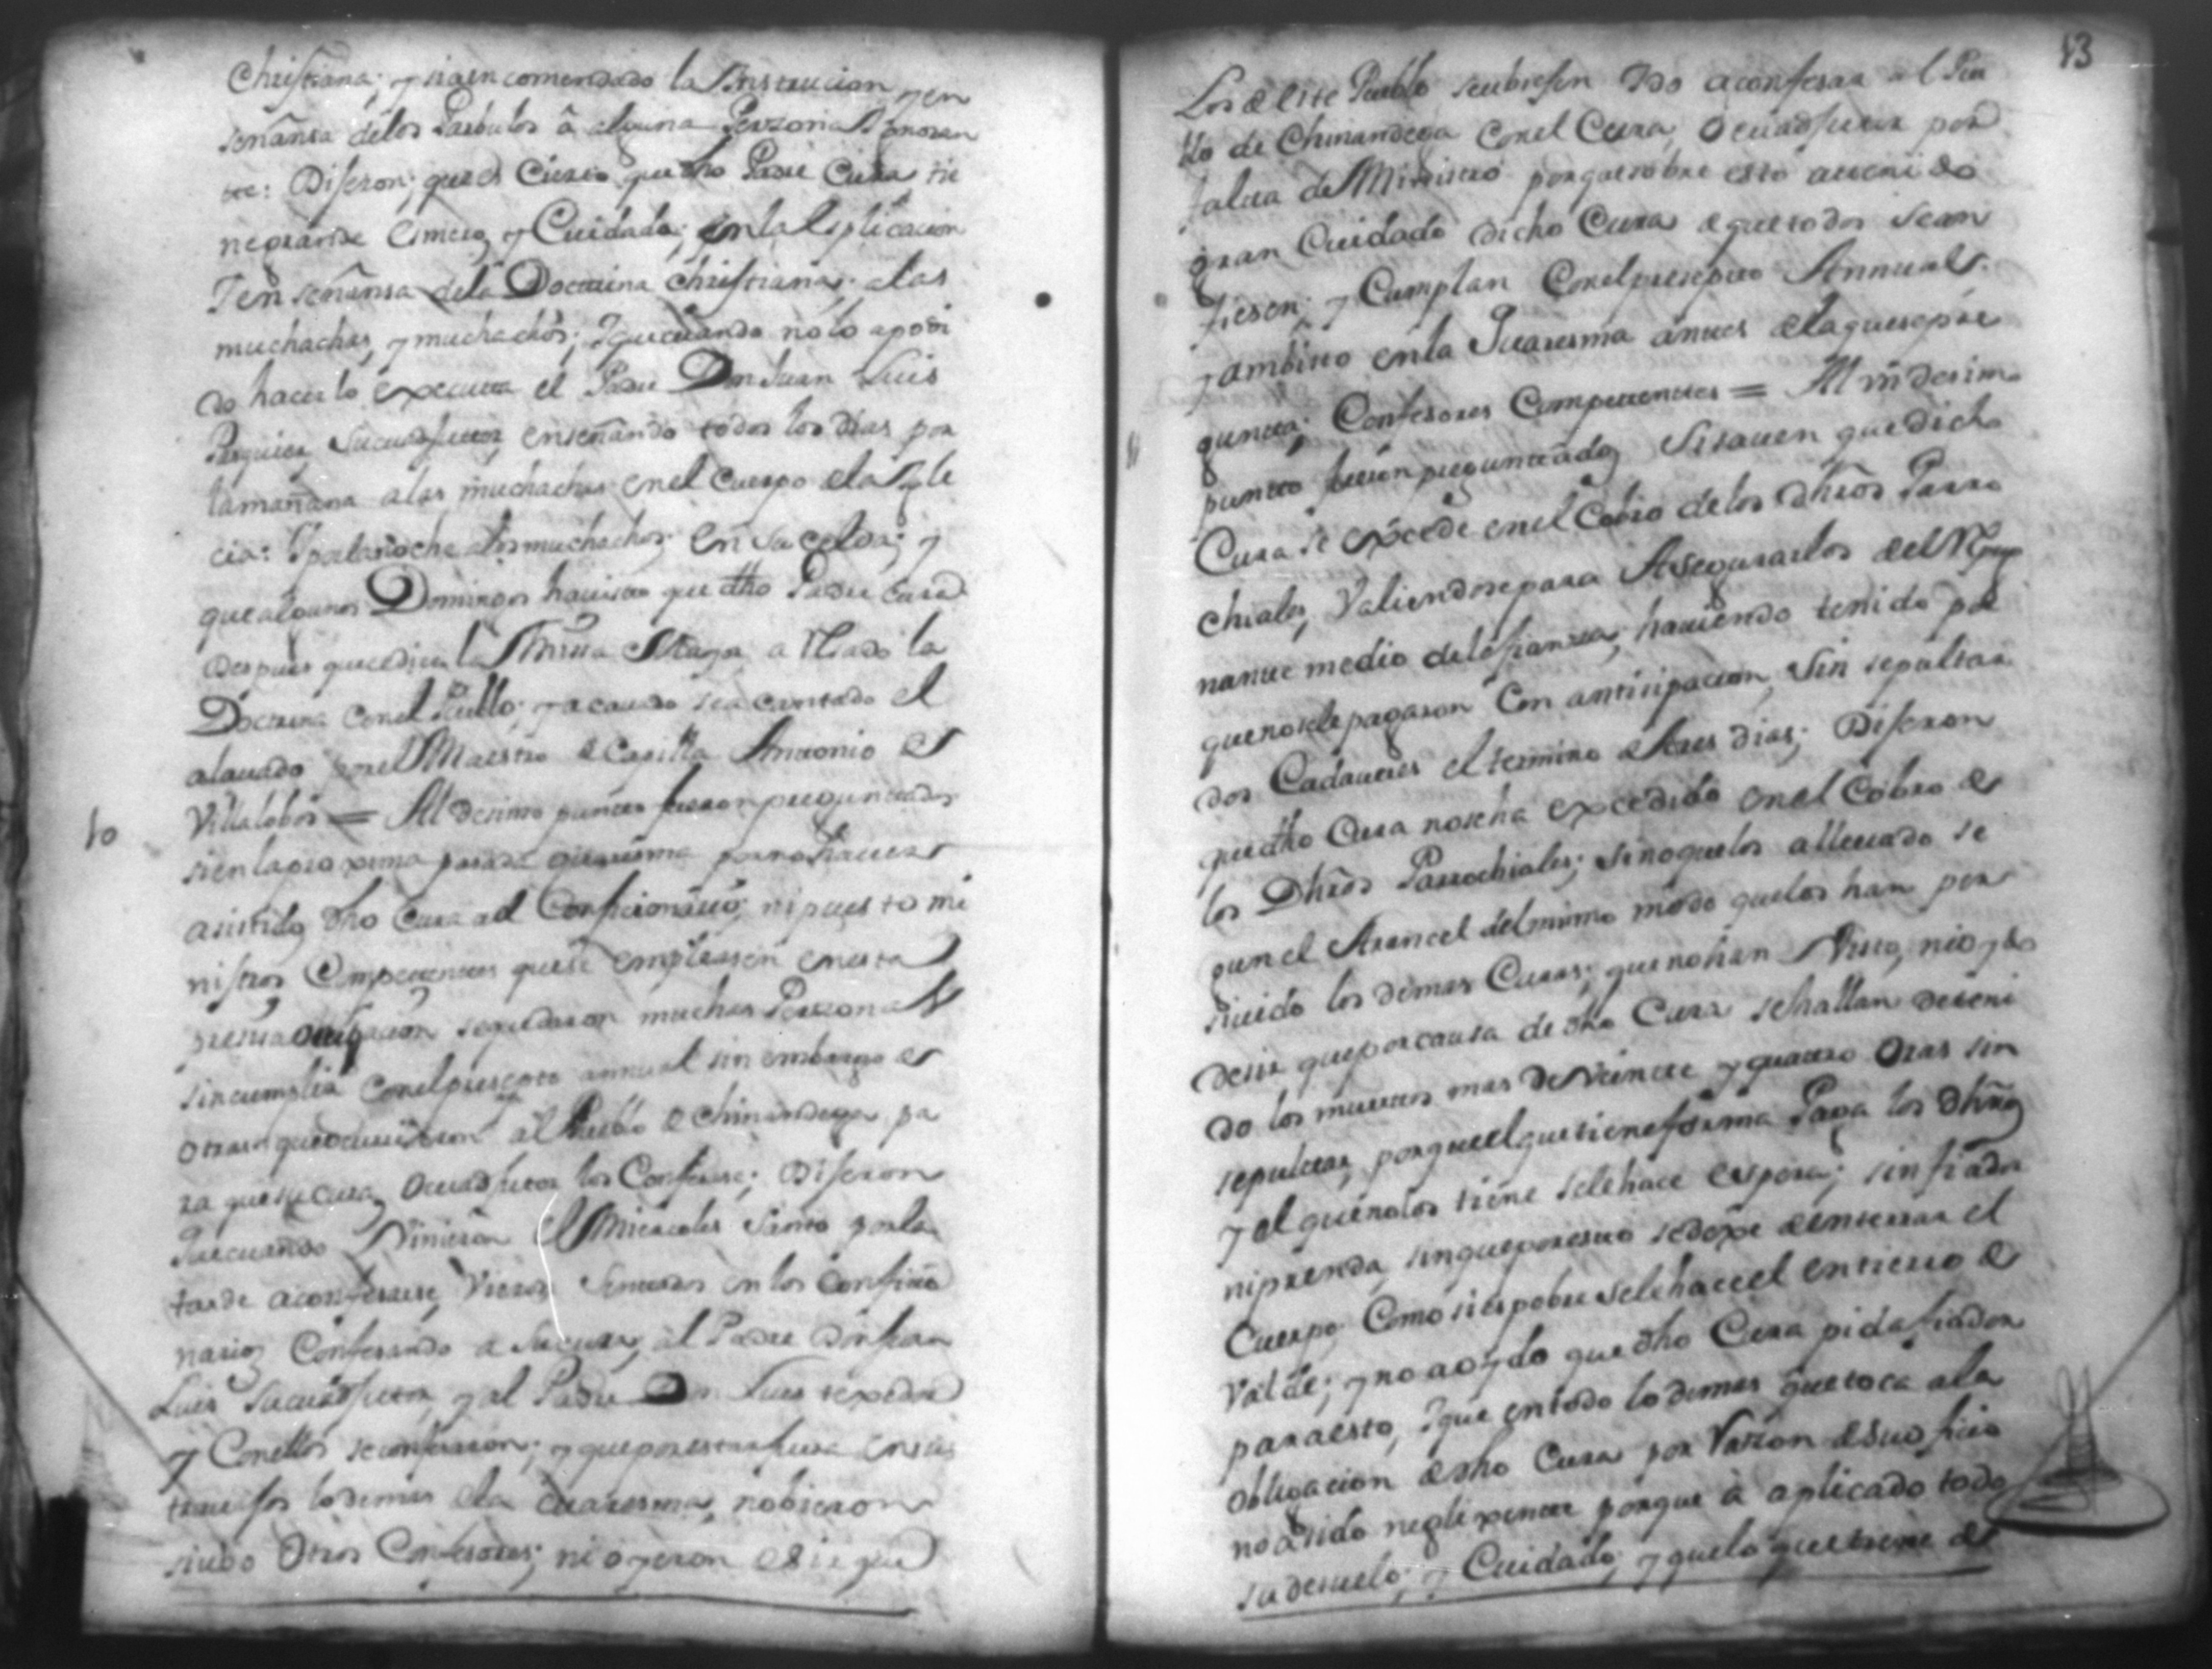 Christiana; y siaencomendado la Instrucion, y en
señansa delos Parbulos â alguna Perzona Ignoran
te: Diseron; que es Cierto que dho Padre Cura tie
negrande Esmero, y Cuidado; en la Esplicacion
Y en señansa dela Doctrina Christiana; alas
muchachas, y muchachos; Y que cuando nolo apodi
do hacerlo executa el Padre Don Juan Luis
su cuadjutor, enseñando todos los dias por
lamañana alas muchachas enel Cuerpo dela Ygle
cia: Y porlanoche alosmuchachos; en su celda; y
que algunos Domingos havisto que dho Padre Cura
despues quedice la Missa Mayor a Resado la
Doctrina conel Pueblo; y acauado sea cantado el
alauado porel Maestro de Capilla Antonio de
Villalobos = Al desimo punto fueron preguntados
10
sienlaproxima pasada quaresma por no hauer
asistido dho Cura al Confecionario; ni puesto mi
nistros Competentes que se empleasen en esta
presisa obligacion sequedaron muchas Perzonas
sincumplir conelpresepto annual sin embargo de
otras que ocurrieron al Pueblo de Chinandega pa
ra que su cura, o cuadjutor los Confesase; Diseron
Que cuando Vinieron el Miercoles Santo porla
tarde aconfesarse, Vieron Sentados en los Confecio
narios Confesando a su cura, al Padre Don Juan
Luis su cuadjutor, y al Padre Don Luis texedor
y Conellos seconfesaron; y queporestar fuera ensus
trauajos lodemas dela cuaresma, nobieron
siubo Otros Confesores; ni oyeron desir que
13
Los de este Pueblo seubiesen Ydo aconfesar al Pue
blo de Chinandega conel Cura, o cuadjutor por
falta de Ministro porquesobre esto atenido
gran Cuidado dicho Cura de quetodos sean
fiesen; y Cumplan Conelpresepto Annual;
y ambisto enla Quaresma antes delaquesepre
gunta; Confesores Competentes = Al undesimo
11
punto fueron preguntados Sisauen que dicho
Cura se excede enel Cobro delos dhros Parro
chiales, Valiendose para Asegurarlos del
nante medio delafianza; hauiendo tenido por
quenosele pagaron Con antisipacion, Sin sepultar
dos Cadaueres el termino detres dias; Diseron
que dho Cura noseha excedido enel Cobro de
los Dhros Parrochiales; sinoquelos alleuado se
gun el Arancel delmismo modo quelos han per
siuido los demas Curas; que no han Visto, nioydo
desir queporcausa de dho Cura se hallan deteni
do los muertos mas de Veinte y quatro Oras sin
sepultar, porque el que tiene forma Paga los dhros,
y el quenolos tiene selehace espera; sin fiador
niprenda, sinqueporesto sedexe deenterrar el
Cuerpo Como siespobre selehaceel entierro de
Valde; y no aoydo que dho Cura pida fiador
para esto, Y que entodo lodemas quetoca ala
Obligacion dedho Cura por Razon desuoficio
no asido negligente porque â aplicado todo
su desuelo; y Cuidado; y quelo quetiene de